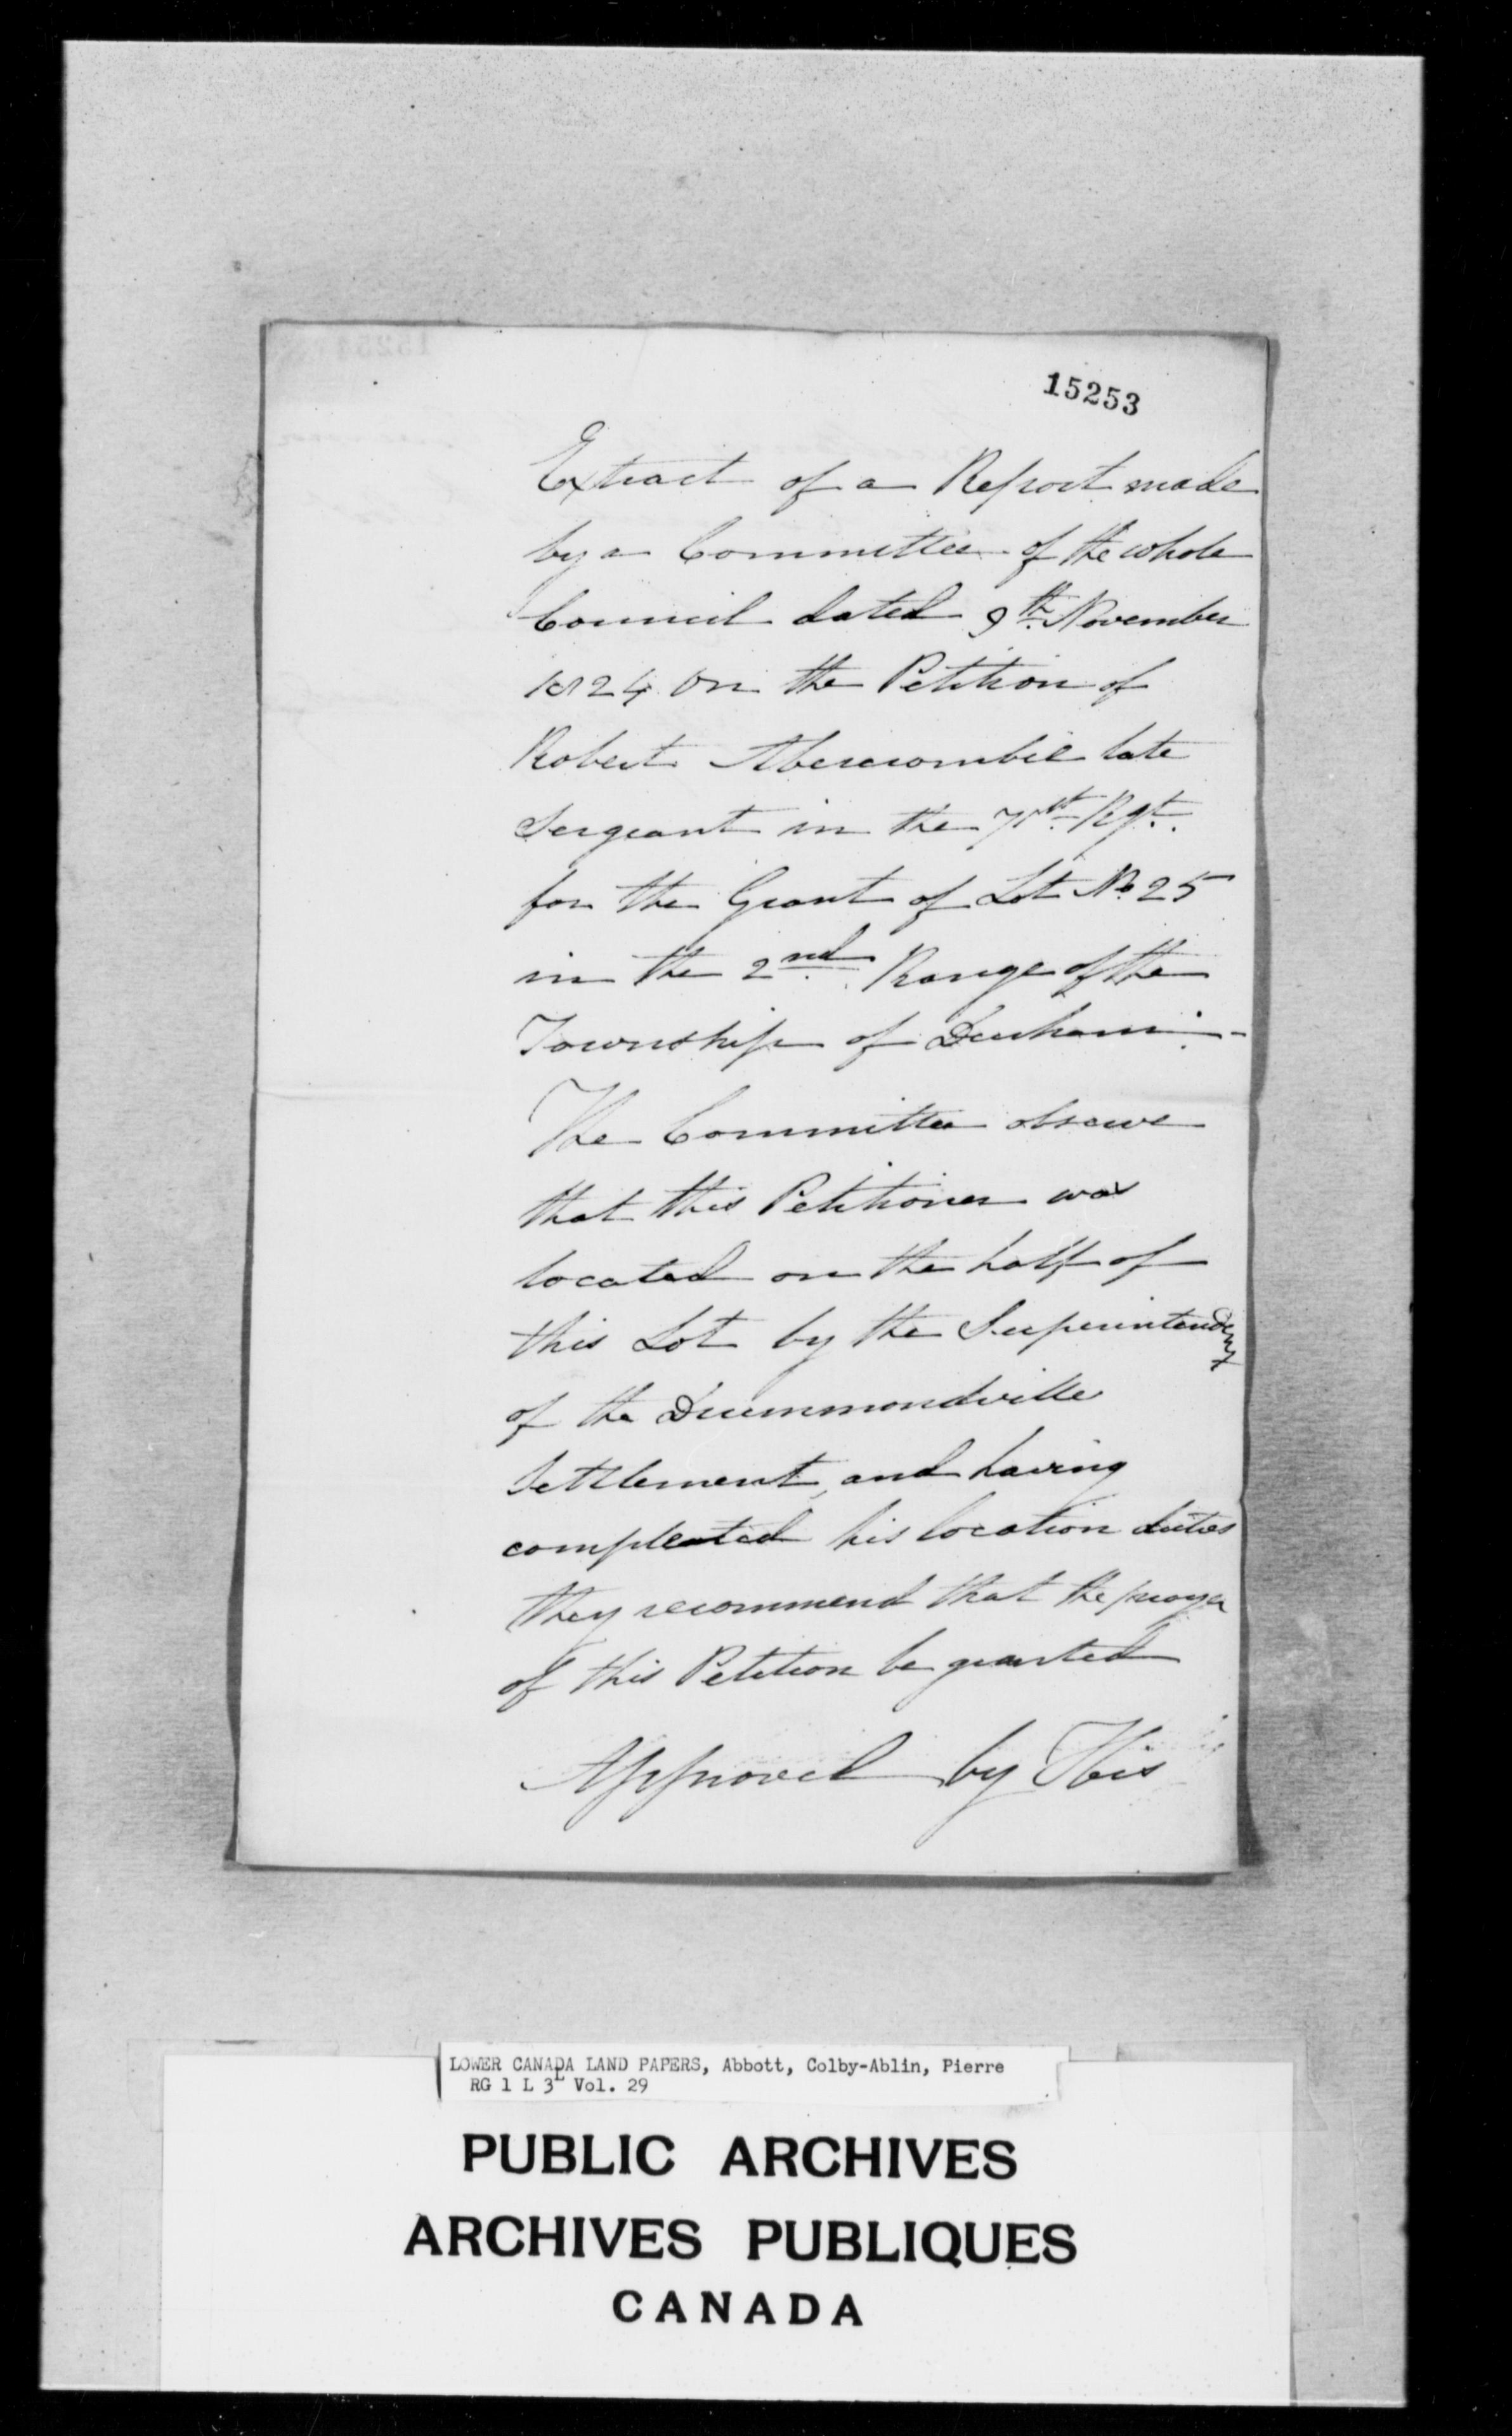 15253
Extract of a Report made
by a Committee of the whole
Council dated 9th. November
1824 on the Petition of
Robert Abercrombie late
Sergeant in the 71st. Rgt.
for the Grant of Lot No. 25
in the 2nd. Range of the
Township of Durham.-
The Committee observe
that this Petitioner was
located on the half of
this Lot by the Superintendent
of the Drummondville
Settlement, and having
compleated his location duties
they recommend that the prayer
of this Petition be granted
Approved by His
LOWER CANADA LAND PAPERS, Abbott, Colby-Ablin, Pierre
RG 1 L 3L Vol. 29
PUBLIC ARCHIVES
ARCHIVES PUBLIQUES
CANADA